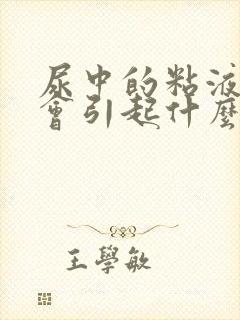 尿中的粘液
會引起什麼
王學敏